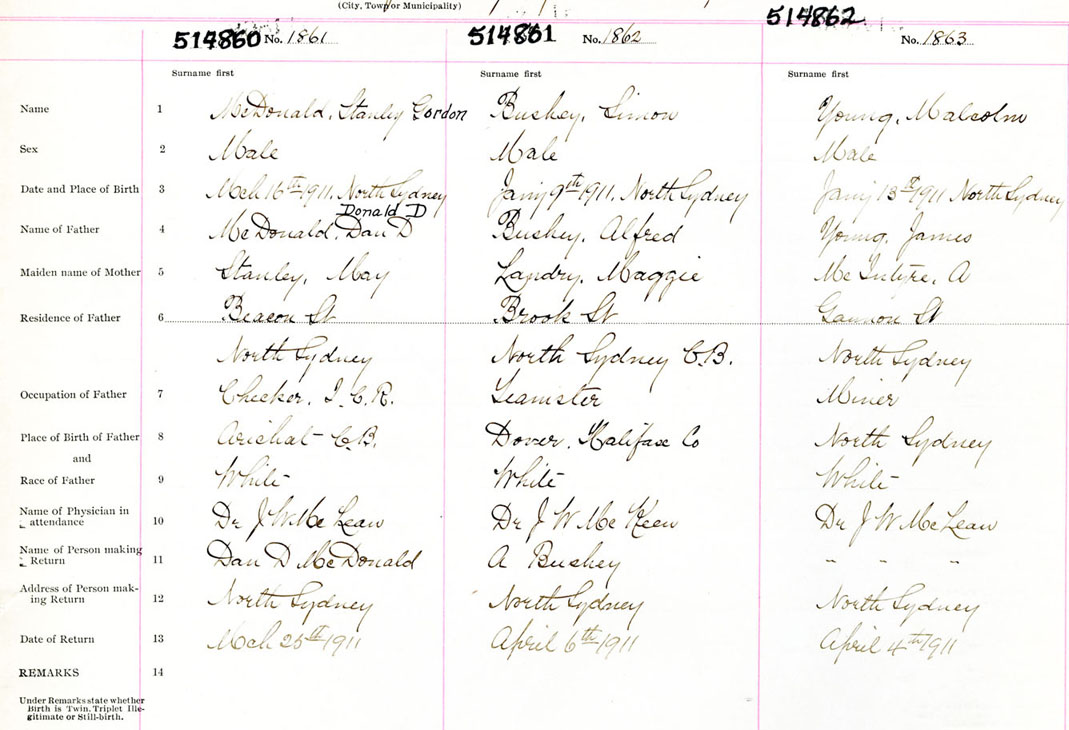 (City, Town or Municipality)
514860 No. 1861 514861 No. 1862 514862 No. 1863
Surname first Surname first Surname first
Name 1 McDonald, Stanley Gordon Bushey, Simon Young, Malcolm
Sex 2 Male Male Male
Date and Place of Birth 3 Mch 16th 1911, North Sydney Jany 9th 1911, North Sydney Jany 13th 1911 North Sydney
Donald D
Name of Father 4 McDonald, Dan D Bushey, Alfred Young, James
Maiden name of Mother 5 Stanley, May Landry, Maggie McIntyre, A
Residence of Father 6 Beacon St Brook St Gannon St
North Sydney North Sydney C.B. North Sydney
Occupation of Father 7 Checker, I.C.R. Teamster Miner
Place of Birth of Father 8 Arichat C.B. Dover, Halifax Co North Sydney
and
Race of Father 9 White White White
Name of Physician in
attendance 10 Dr J W McLean Dr J W McKeen Dr J W McLean
Name of Person making
Return 11 Dan D McDonald A Bushey " " "
Address of Person mak-
ing Return 12 North Sydney North Sydney North Sydney
Date of Return 13 Mch 25th 1911 April 6th 1911 April 4th 1911
REMARKS 14
Under Remarks state whether
Birth is Twin, Triplet Ille-
gitimate or Still-birth.